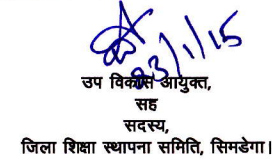 23/1/15
उप विकास आयुक्त,
सह
सदस्य,
जिला शिक्षा स्थापना समिति, सिमडेगा।